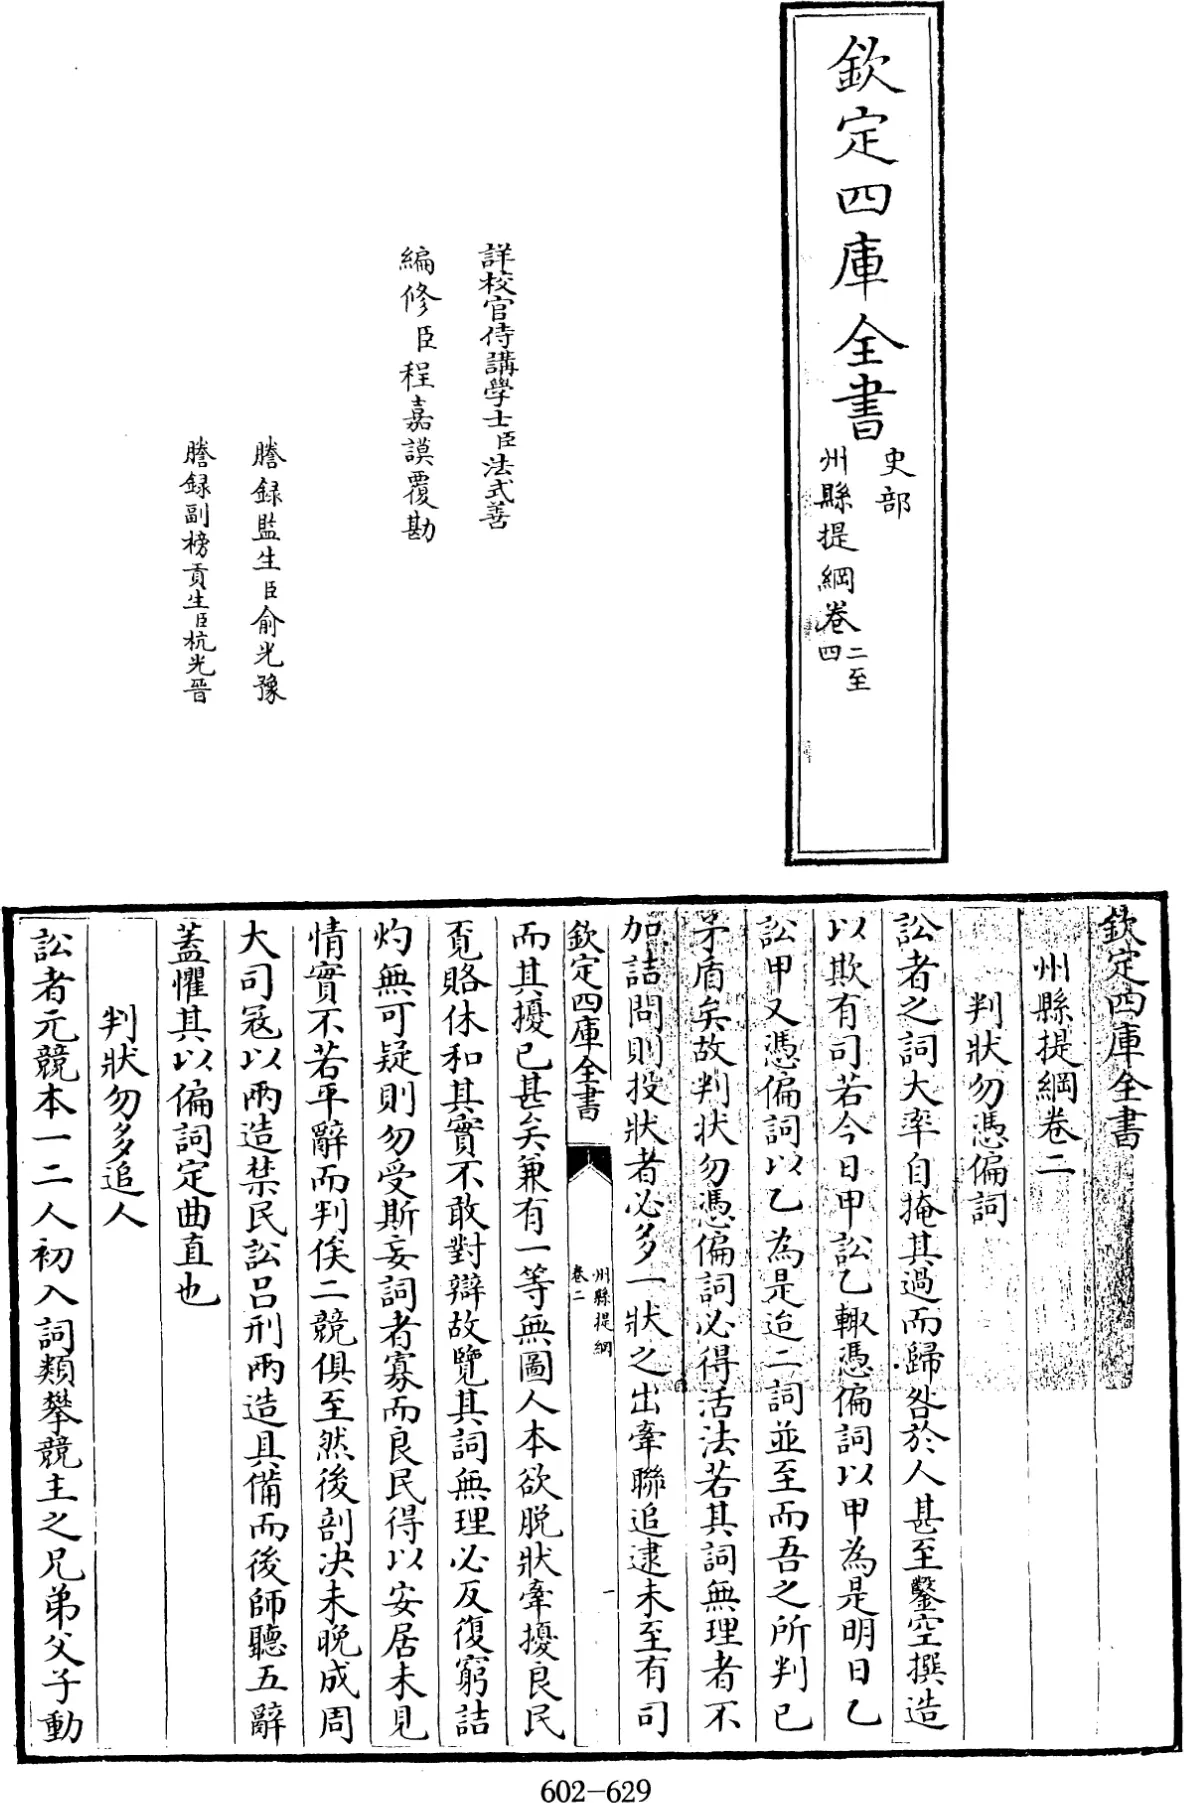 欽定四庫全書
史部
州縣提綱卷二至四
詳校官侍講學士臣法式善
編修臣程嘉謨覆勘
謄録監生臣俞光豫
謄録副榜貢生臣杭光晉
欽定四庫全書
州縣提綱卷二
判狀勿憑偏詞
訟者之詞大率自掩其過而歸咎於人甚至鑿空撰造
以欺有司若今日甲訟乙輙憑偏詞以甲為是明日乙
訟甲又憑偏詞以乙為是迨二詞並至而吾之所判已
矛盾矣故判狀勿憑偏詞必得活法若其詞無理者不
加詰問則投狀者必多一狀之出牽聯追逮未至有司
欽定四庫全書
州縣提綱
卷二
一
而其擾已甚矣兼有一等無圖人本欲脱狀牽擾良民
覔賂休和其實不敢對辯故覽其詞無理必反復窮詰
灼無可疑則勿受斯妄詞者寡而良民得以安居未見
情實不若平辭而判俟二競俱至然後剖决未晚成周
大司冦以兩造禁民訟吕刑兩造具備而後師聽五辭
蓋懼其以偏詞定曲直也
判狀勿多追人
訟者元競本一二人初入詞類攀競主之兄弟父子動
602-629